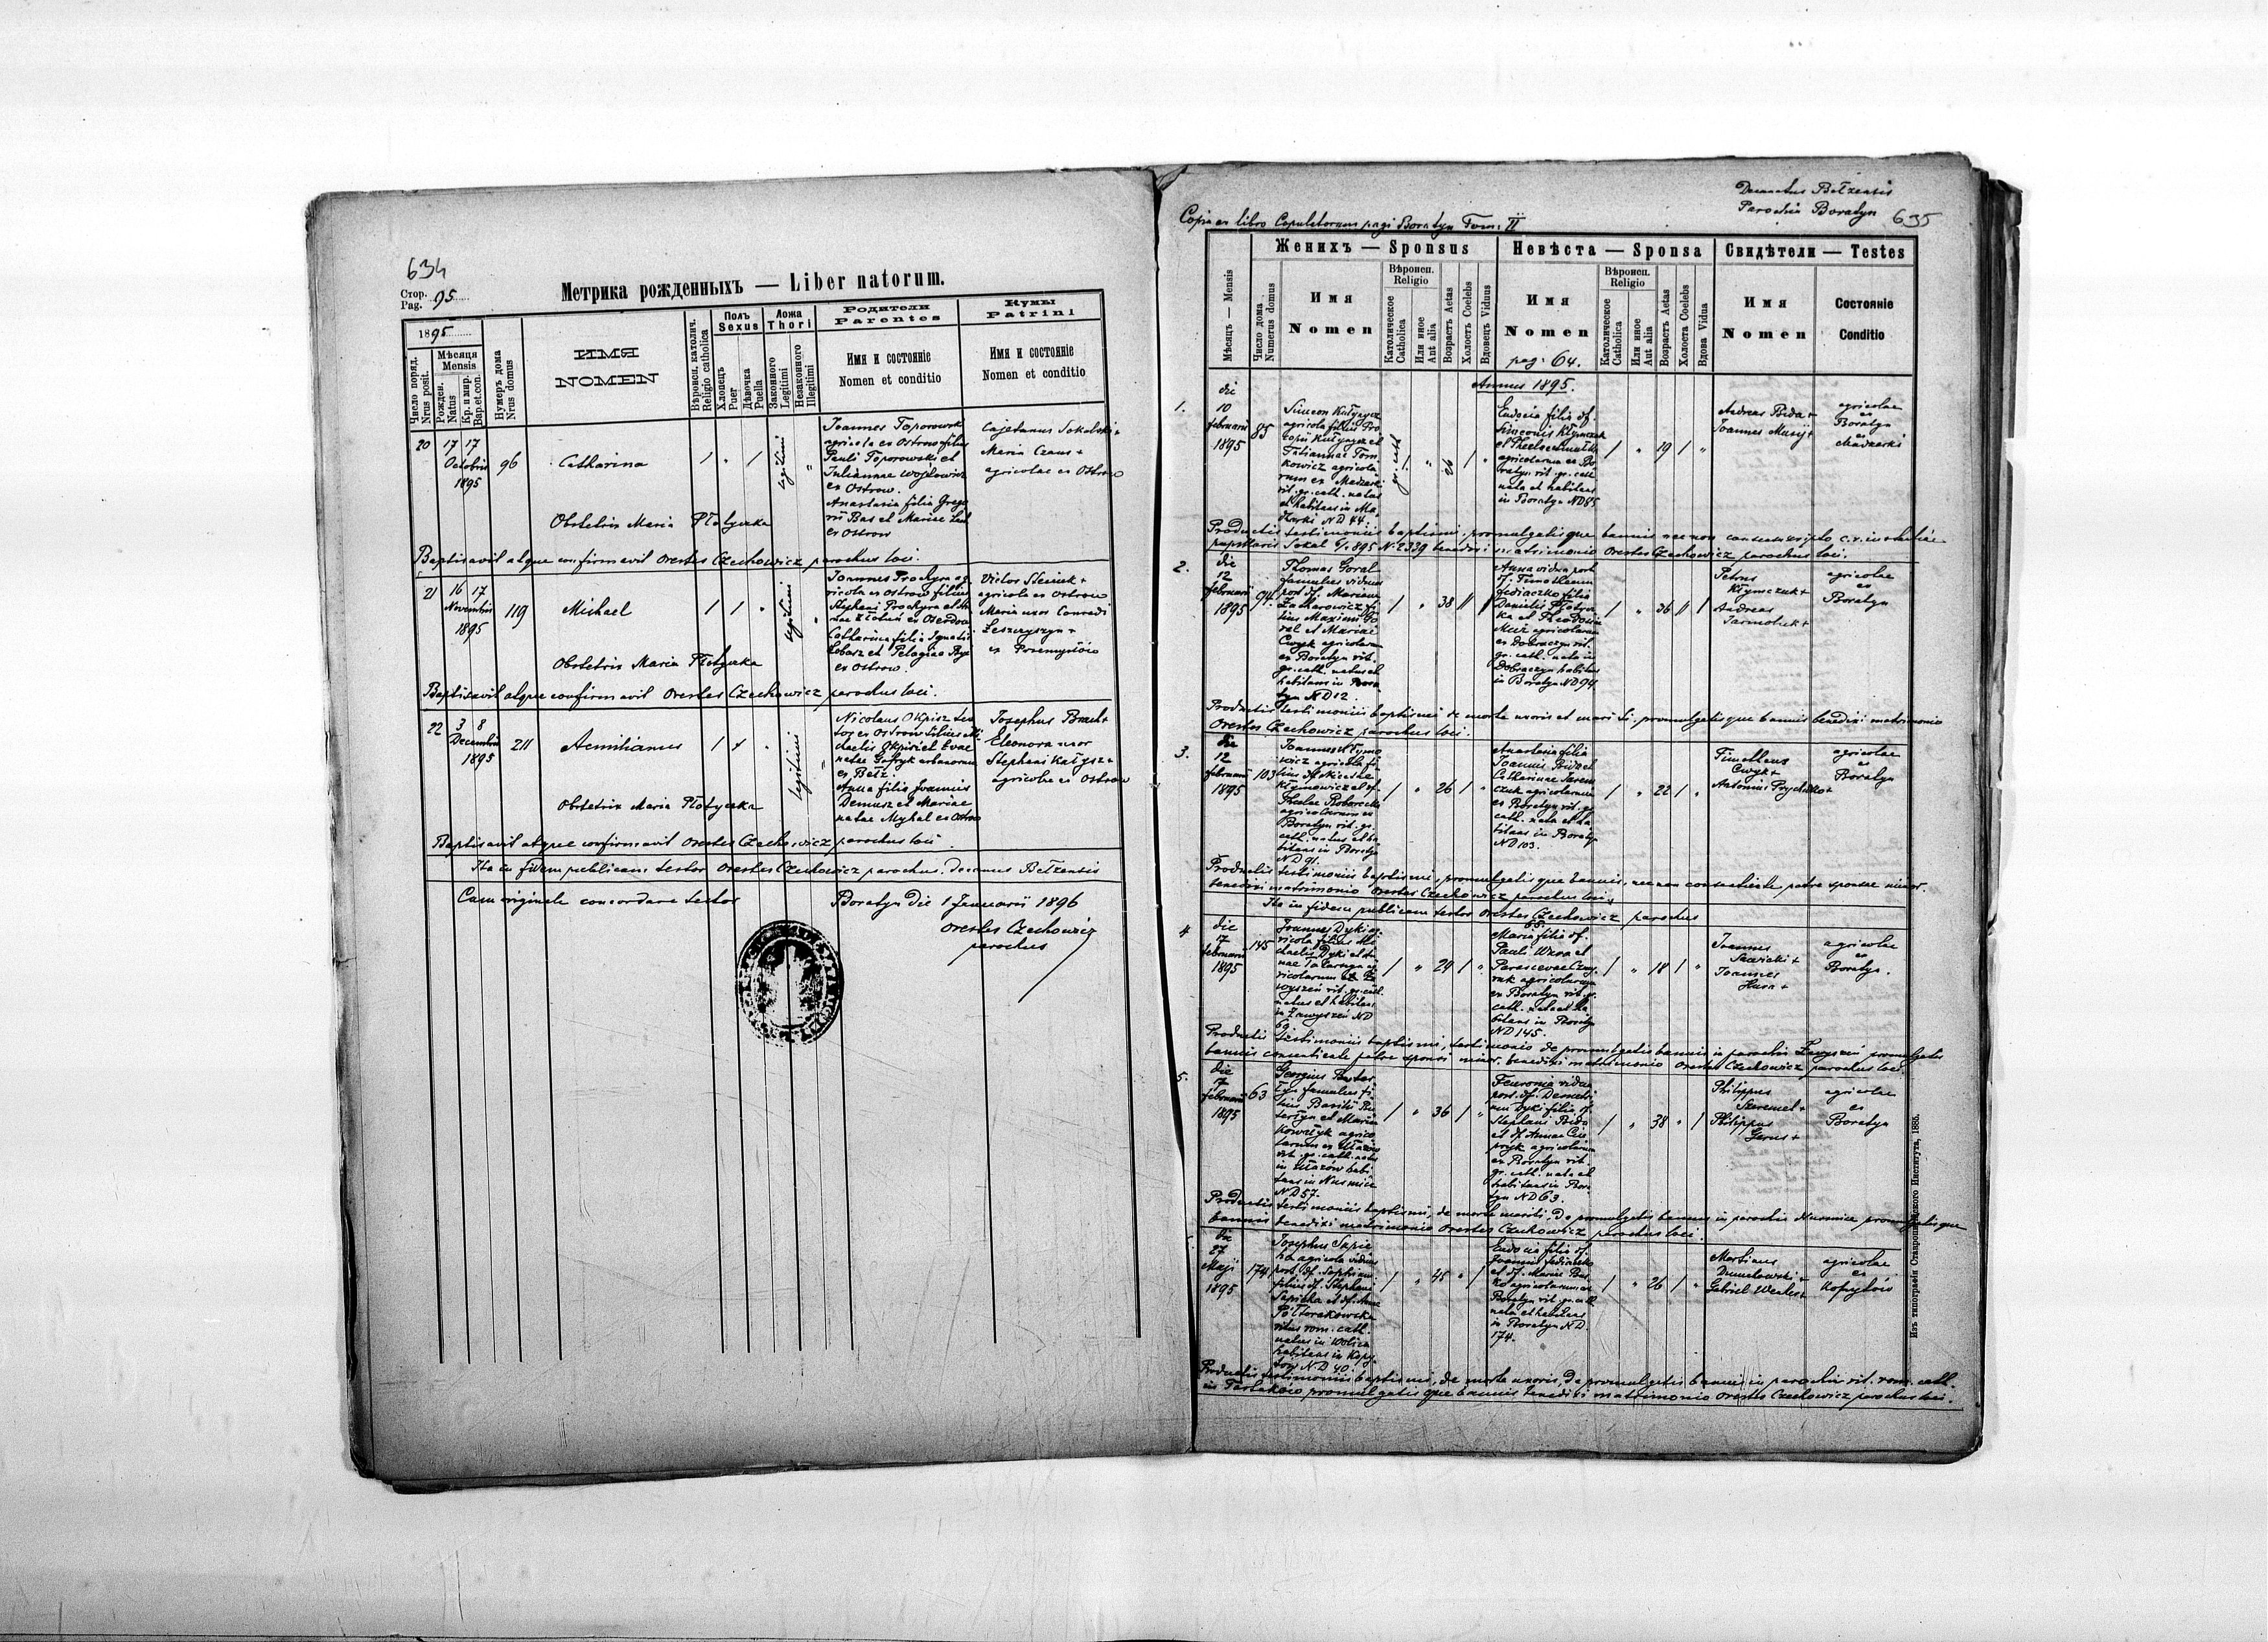 634
Стор.
Pag. 95
Метрика рожденныхъ — Liber natorum.
1895
Число поряд.
Nrus posit.
Мѣсяця
Mensis
Рожден.
Natus
Кр. и мир.
Bap. et con.
Нумеръ дома
Nrus domus
ИМЯ
NOMEN
Вѣроисп. католич.
Religio catholica
Полъ
Sexus
Хлопець
Puer
Дѣвочка
Puella
Ложа
Thori
Законного
Legitimi
Незаконного
Illegitimi
Родители
Parentes
Имя и состояніе
Nomen et conditio
Кумы
Patrini
Имя и состояніе
Nomen et conditio
20 17 17
Octobris
1895
96
Catharina
legitimi
Joannes Toporowski
agricola ex Ostrow filius
Pauli Toporowski et
Juliannae Wojtowicz
ex Ostrow.
Anastasia filia Grego
rii Bas et Mariae
ex Ostrow
Cajetanus Sokolski +
Maria Czaus +
agricolae ex Ostrow
Obstetrix Maria Płotyczka
Baptisavit atque confirmavit Orestes Czechowicz parochus loci.
21 16 17
Novembris
1895
119
Michael
legitimi
Joannes Prochyra ag
ricola ex Ostrow filius
Stephani Prochyra et
Catharina filia Ignatii
et Pelagiae
ex Ostrow.
Victor +
agricola ex Ostrow
Maria uxor Conradi
Leszczyszyn +
ex
Obstetrix Maria Płotyczka
Baptisavit atque confirmavit Orestes Czechowicz parochus loci.
22 3 8
Decembris
1895
211
Aemilianus
legitimi
Nicolaus Okpisz
ex Ostrow filius Mi
chaelis Okpisz et Evae
natae
ex Bełz.
Anna filia Joannis
Demusz et Mariae
natae Myhal ex Ostrow
Josephus Brach +
Eleonora uxor
Stephani Kałysz +
agricolae ex Ostrow
Obstetrix Maria Płotyczka
Baptisavit atque confirmavit Orestes Czechowicz parochus loci.
Ita in fidem publicam testor Orestes Czechowicz parochus. Decanus Bełzensis
Cum originale concordare testor
Boratyn die 1 Januarii 1896
Orestes Czechowicz
parochus
Decanatus Bełzensis
Parochia Boratyn 635
Copia ex libro Copulatorum pagi Boratyn Tom. II
Мѣсяцъ — Mensis
Число дома
Numerus domus
Женихъ — Sponsus
Имя
Nomen
Вѣроисп.
Religio
Католическое
Catholica
Или иное
Aut alia
Возрастъ Aetas
Холостъ Coelebs
Вдовецъ Viduus
Невѣста — Sponsa
Имя
Nomen
pag. 64.
Вѣроисп.
Religio
Католическое
Catholica
Или иное
Aut alia
Возрастъ Aetas
Холоста Coelebs
Вдова Vidua
Свидѣтели — Testes
Имя
Nomen
Состояніе
Conditio
Annus 1895.
1. die
10
februarii
1895
85
Simeon Kułynycz
agricola filius Pro
copii Kułynycz et
Tatiannae Tom
kowicz agricola
rum ex Madzarki
rit. gr. cath. natus
et habitans in Ma
dzarki ND 44.
gr. cath.
26
Eudocia filia df.
Simeonis Klymczuk
et Theclae
agricolarum ex Bo
ratyn rit. gr. cath.
nata et habitans
in Boratyn ND 85
19
Andreas Bida +
Joannes Musij +
agricolae
ex
Boratyn
et
Madzarki
Productis testimoniis baptismi, promulgatisque bannis nec non consensu scripto c. r. instantiae
pupillaris Sokal 6/2 895 N. 2339 benedixi matrimonio Orestes Czechowicz parochus loci.
2. die
12
februarii
1895
94.
Thomas Goral
famulus viduus
post df. Mariam
Zacharowicz fi
lius Maximi Go
ral et Mariae
Cwyk agricolarum
ex Boratyn rit.
gr. cath. natus et
habitans in Bora
tyn ND 12.
38
Anna vidua post
df. Timotheum
Fediaczko filia
Danielis Płotycz
ka et Theodosia
agricolarum
ex Dobraczyn rit.
gr. cath. nata in
Dobraczyn habitans
in Boratyn ND 94.
36
Petrus
Klymczuk +
Andreas
Jarmoluk +
agricolae
ex
Boratyn
Productis testimoniis baptismi de morte uxoris et mariti, promulgatisque bannis benedixi matrimonio
Orestes Czechowicz parochus loci.
3. die
12
februarii
1895
103
Joannes Klymo
wicz agricola fi
lius df. Nicetae
Klymowicz et df.
Theclae
agricolarum ex
Boratyn rit. gr.
cath. natus et ha
bitans in Boratyn
ND 91.
26
Anastasia filia
Joannis Bida et
Catharinae
agricolarum
ex Boratyn rit. gr.
cath. nata et ha
bitans in Boratyn
ND 103.
22
Timotheus
Cwyk +
Antonius Prychidko +
agricolae
ex
Boratyn
Productis testimoniis baptismi, promulgatisque bannis, nec non consentiente patre sponsae minor.
benedixi matrimonio Orestes Czechowicz parochus loci.
Ita in fidem publicam testor Orestes Czechowicz parochus
65.
4. die
17
februarii
1895
145
Joannes Dyki ag
ricola filius Mi
chaelis Dyki et An
nae
agricolarum ex Za
wyszeń rit. gr. cath.
natus et habitans
in Zawyszeń ND
69
24
Maria filia df.
Pauli et
Parascevae
agricolarum
ex Boratyn rit. gr.
cath. nata et ha
bitans in Boratyn
ND 145.
18
Joannes
Sawicki +
Joannes
Hura +
agricolae
ex
Boratyn.
Productis testimoniis baptismi, testimonio de promulgatis bannis in parochia Zawyszeń promulgatis
bannis consentiente patre sponsi minor. benedixi matrimonio Orestes Czechowicz parochus loci.
5. die
17
februarii
1895
63
Georgius
famulus fi
lius Basilii
et Mariae
Kowalyk agrico
larum ex Ułazów
rit. gr. cath. natus
in Ułazów habi
tans in Nusmice
ND 57.
36
Feuronia vidua
post. df. Demetri
um Dyki filia df.
Stephani Bida
et df. Annae
agricolarum
ex Boratyn rit.
gr. cath. nata et
habitans in Bora
tyn ND 63.
38
Philippus
Szeremet +
Philippus
Garus +
agricolae
ex
Boratyn
Productis testimoniis baptismi, de morte mariti, de promulgatis bannis in parochia Nusmice promulgatisque
bannis benedixi matrimonio Orestes Czechowicz parochus loci.
die
27
Maji
1895
174
Josephus Sapie
ha agricola viduus
post. df. Sophiam
filius df. Stephani
Sapieha et df. Annae
Półtorakowska
ritus rom. cath.
natus in Wolica
habitans in Kopy
tów N.D 40.
45
Eudocia filia df.
Joannis Fediaczko
et df. Mariae
agricolarum ex
Boratyn rit. gr. cath.
nata et habitans
in Boratyn ND.
174.
26
Martinus
Dumelowski +
Gabriel +
agricolae
ex
Kopytów
Productis testimoniis baptismi, de morte uxoris, de promulgatis bannis in parochia rit. rom. cath.
in Tartaków promulgatisque bannis benedixi matrimonio Orestes Czechowicz parochus loci.
Изъ типографіи Ставропигійского Института, 1885.